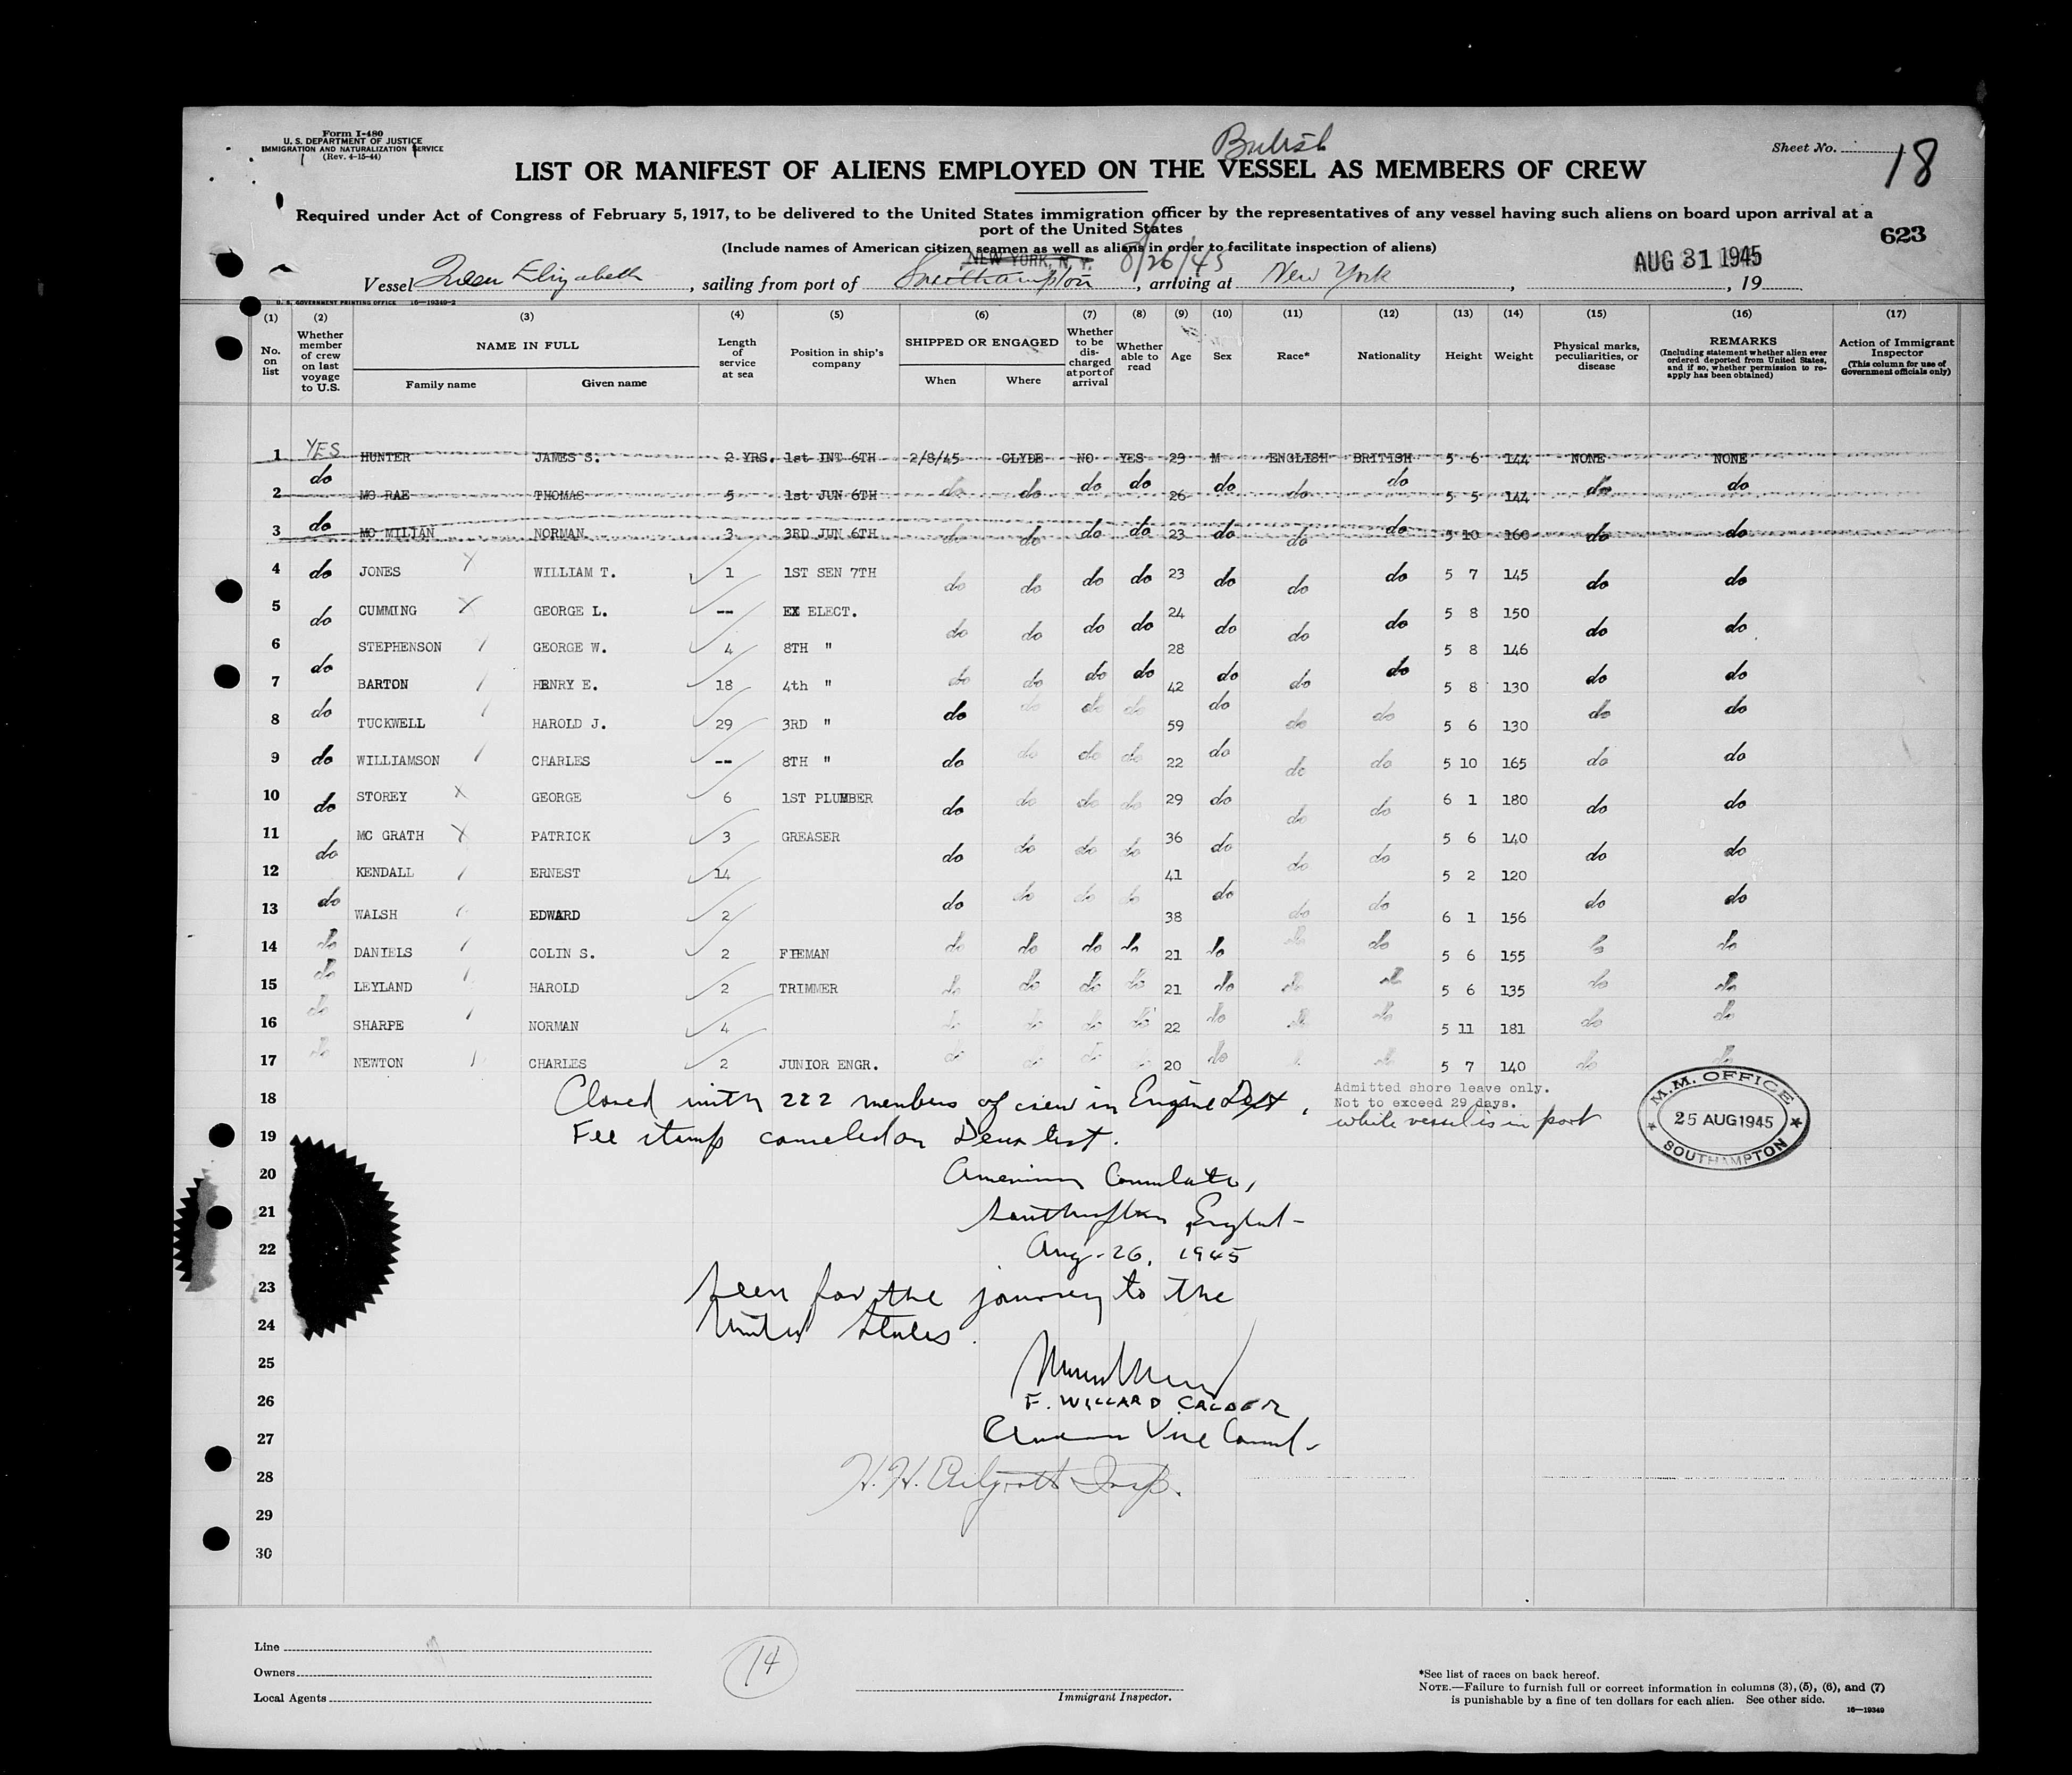 Form I-480
U. S. DEPARTMENT OF JUSTICE
IMMIGRATION AND NATURALIZATION SERVICE
(Rev. 4-15-44)
British
Sheet No. 18
LIST OR MANIFEST OF ALIENS EMPLOYED ON THE VESSEL AS MEMBERS OF CREW
Required under Act of Congress of February 5, 1917, to be delivered to the United States immigration officer by the representatives of any vessel having such aliens on board upon arrival at a
port of the United States
623
(Include names of American citizen seamen as well as aliens in order to facilitate inspection of aliens)
NEW YORK, N. Y. 8/26/45
AUG 31 1945
Vessel Queen Elizabeth, sailing from port of Southampton, arriving at New York, , 19
U. S. GOVERNMENT PRINTING OFFICE 16—19349-2
(1) (2) (3) (4) (5) (6) (7) (8) (9) (10) (11) (12) (13) (14) (15) (16) (17)
No. on list
Whether member of crew on last voyage to U.S.
NAME IN FULL
Family name
Given name
Length of service at sea
Position in ship's company
SHIPPED OR ENGAGED
When
Where
Whether to be discharged at port of arrival
Whether able to read
Age
Sex
Race*
Nationality
Height
Weight
Physical marks, peculiarities, or disease
REMARKS
(Including statement whether alien ever ordered deported from United States, and if so, whether permission to reapply has been obtained)
Action of Immigrant Inspector
(This column for use of Government officials only)
1 YES HUNTER JAMES S. 2 YRS. 1st INT 6TH 2/8/45 CLYDE NO YES 29 M ENGLISH BRITISH 5 6 144 NONE NONE
2 do MC RAE THOMAS 5 1st JUN 6TH do do do do 26 do do do 5 5 144 do do
3 do MC MILIAN NORMAN 3 3RD JUN 6TH do do do do 23 do do do 5 10 160 do do
4 do JONES WILLIAM T. 1 1ST SEN 7TH do do do do 23 do do do 5 7 145 do do
5 do CUMMING GEORGE L. -- EX ELECT. do do do do 24 do do do 5 8 150 do do
6 do STEPHENSON GEORGE W. 4 8TH " do do do do 28 do do do 5 8 146 do do
7 do BARTON HENRY E. 18 4th " do do do do 42 do do do 5 8 130 do do
8 TUCKWELL HAROLD J. 29 3RD " 59 5 6 130
9 do WILLIAMSON CHARLES -- 8TH " do do do do 22 do do do 5 10 165 do do
10 do STOREY GEORGE 6 1ST PLUMBER do do do do 29 do do do 6 1 180 do do
11 do MC GRATH PATRICK 3 GREASER do do do do 36 do do do 5 6 140 do do
12 KENDALL ERNEST 14 41 5 2 120
13 do WALSH EDWARD 2 do do do do 38 do do do 6 1 156 do do
14 do DANIELS COLIN S. 2 FIEMAN do do do do 21 do do do 5 6 155 do do
15 do LEYLAND HAROLD 2 TRIMMER do do do do 21 do do do 5 6 135 do do
16 do SHARPE NORMAN 4 do do do do 22 do do do 5 11 181 do do
17 do NEWTON CHARLES 2 JUNIOR ENGR. do do do do 20 do do 5 7 140 do do
18 Closed with 222 members of crew in Engine Dept,
Admitted shore leave only.
Not to exceed 29 days.
while vessel is in port
M.M. OFFICE
25 AUG 1945
SOUTHAMPTON
19 Fee stamp canceled on Deck list.
20 American Consulate,
21 Southampton England
22 Aug. 26, 1945
23 Seen for the journey to the
24 United States.
25
26 F. WILLARD CALDER
27 American Vice Consul
28 H.H. Insp.
29
30
Line
Owners
Local Agents
14
Immigrant Inspector.
*See list of races on back hereof.
NOTE.—Failure to furnish full or correct information in columns (3), (5), (6), and (7)
is punishable by a fine of ten dollars for each alien. See other side.
16—19349